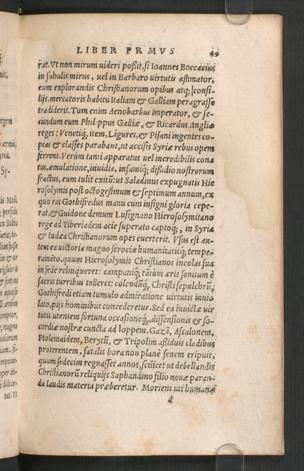 LIBER PRIMVS 49
rat. Vt non mirum uideri poßit, si Ioannes Boccacius
in fabulis mirus, uel in Barbaro uirtutis æstimator,
eum explorandis Christianorum opibus atq; consi-
lijs, mercatoris habitu Italiam & Galliam peragrasse
tradiderit. Tum enim Aenobarbus imperator, & se-
cundum eum Philippus Galliæ, & Ricardus Angliæ
reges: Venetiq́, item, Ligures, & Pisani ingentes co-
pias & classes parabant, ut accisis Syriæ rebus opem
ferrent. Verùm tanti apparatus uel incredibili cona
tus, æmulatione, inuidia, infamiq́; dißidio nostrorum
fractus, eum tulit exitũ: ut Saladinus expugnatis Hie
rosolymis post octogesimum & septimum annum, ex
quo eas Gothifredus manu cum insigni gloria cepe-
rat, & Guidone demum Lusignano Hierosolymitano
rege ad Tiberiadem acie superato captoq́;, in Syria
& Iudæa Christianorum opes euerterit. Vsus est au-
tem ea uictoria magno ferocis humanitatisq́; tempe-
ramẽto, quum Hierosolymis Christianos incolas sua
in sede relinqueret: campanisq́; tãtùm æris sonitum è
sacris turribus tolleret: colendũq́; Christi sepulchrũ,
Gothifredi etiam tumulo admiratione uirtutis inuio
lato, pijs hominibus concederet. Sed ea inuictæ uir
tuti utentem fortuna occasioneq́;, dissensionis & so-
cordia nostræ cuncta ad Ioppem, Gazã, Ascalonem,
Ptolemaidem, Berytũ, & Tripolim assiduis cladibus
proterentem, fatalis hora non planè senem eripuit,
quum sedecim regnasset annos, scilicet ut debellandis
Christianorũ reliquijs Saphandino filio nouæ paran-
da laudis materia præberetur. Moriens uir humanæ